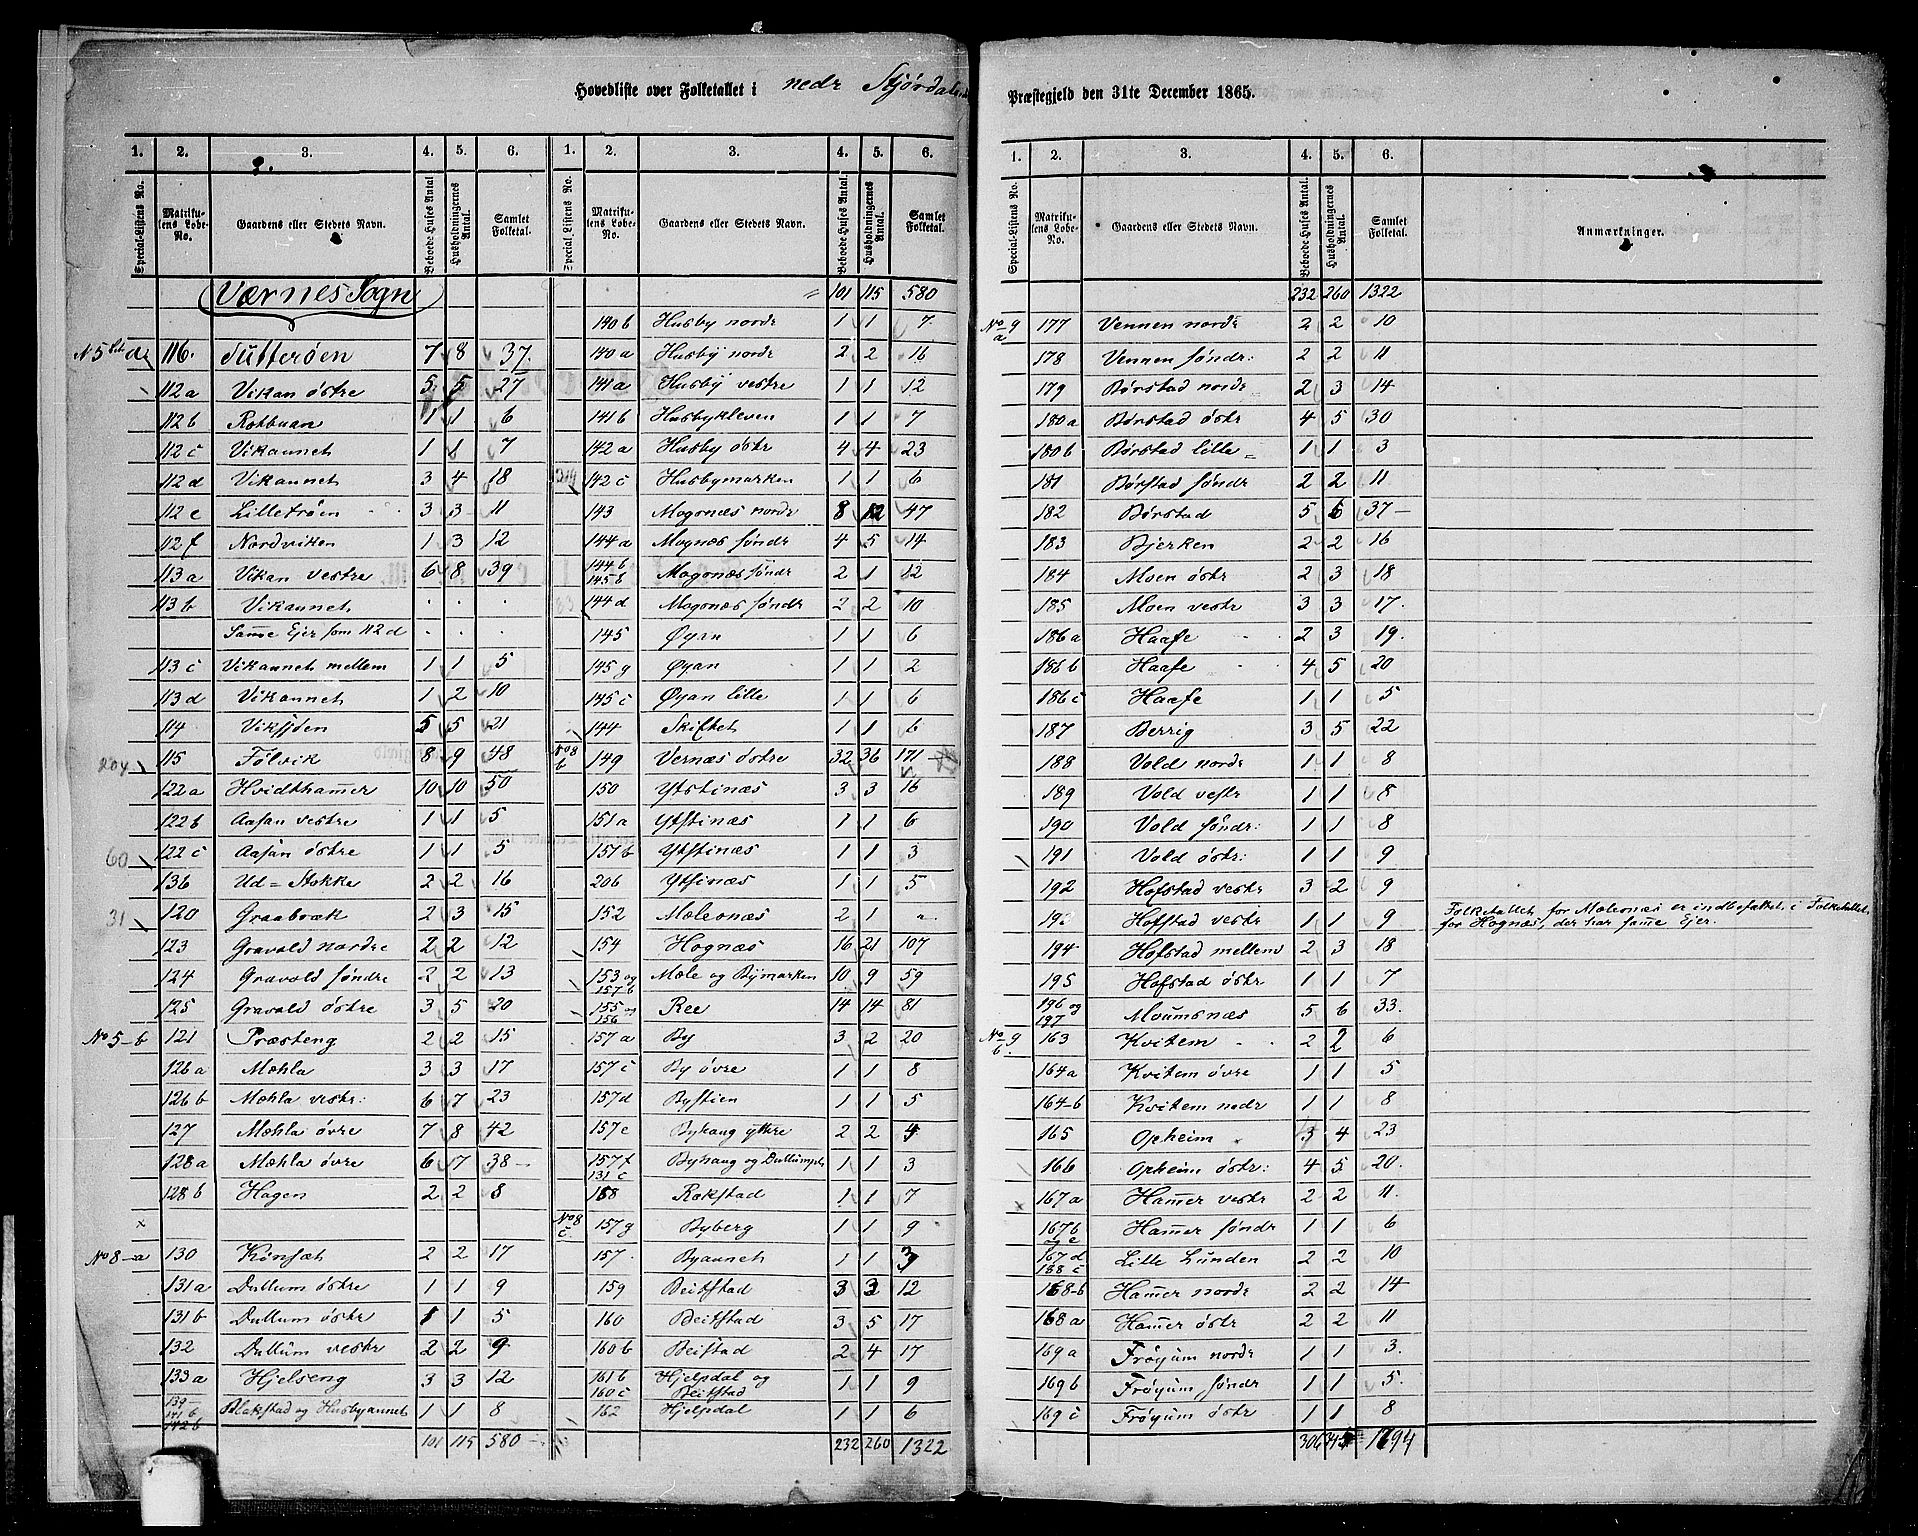 Hovedliste over Folketallet i nedr Stjørdalens Præstegjeld den 31te December 1865.
1. 2. 3. 4. 5. 6.
Special-Listens No. Matrikulens Løbe-No. Gaardens eller Stedets Navn. Beboede Huses Antal. Husholdningernes Antal. Samlet Folketal.
Værnes Sogn
116. Sutterøen 7 8 37.
112a Vikan østre 5 5 27
112b Rotbuan 1 1 6
112c Vikaunet 1 1 7
112d Vikaunet 3 4 18
112e Lilletrøen 3 3 11
112f Nordviken 1 3 12
113a Vikan vestre 6 8 39
113b Vikaunet . . .
Samme Ejer som 112d . . .
113c Vikaunet mellem 1 1 5
113d Vikaunet 1 2 10
114 Viksjden 5 5 21
204 115 Følvik 8 9 48
122a Hvidthammer 10 10 50
122b Aasan vestre 1 1 5
60 122c Aasan østre 1 1 5
136 Ud-Stokke 2 2 16
31 120 Graabræk 2 3 15
123 Gravold nordre 2 2 12
124 Gravold søndre 2 2 13
125 Gravold østre 3 5 20
No 5-b 121 Præsteng 2 2 15
126a Mæhla 3 3 17
126b Mæhla vestr: 6 7 23
127 Mæhla øvre 7 8 42
128a Mæhla øvre 6 7 38
128b Hagen 2 2 8
×
No 8-a 130 Kønsæt 2 2 17
131a Dullum østre 1 1 9
131b Dullum østr 1 1 5
132 Dullum vestr 2 2 9
133a Hjelseng 3 3 12
139 141b 142b Blakstad og Husbyaunet 1 1 8
101 115 580
1. 2. 3. 4. 5. 6.
Special Listens No. Matrikulens Løbe-No. Gaardens eller Stedets Navn. Beboede Huses Antal. Husholdningernes Antal. Samlet Folketal.
" 101 115 580
140b Husby nordr 1 1 7
140a Husby nordr 2 2 16
141a Husby vestre 1 1 12
141b Husbykleven 1 1 7
142a Husby østr 4 4 23
142c Husbymarken 1 1 6
143 Mogonæs nordr 8 12 47
144a Mognæs søndr 4 5 14
144b 145b Mogonæs søndr 2 1 12
144d Mogonæs søndr 2 2 10
145 Øyan 1 1 6
145g Øyan 1 1 2
145c Øyan lille 1 1 6
144 Skiftet 1 1 6
No 8 b 149 Vernæs østre 32 36 171
150 Ytstinæs 3 3 16
151a Ytstinæs 1 1 6
151b Ytstinæs 1 1 3
206 Ytsinæs 1 1 5
152 Mæleonæs 2 1 "
154 Hognæs 16 21 107
153 og 157b Mæle og Bymarken 10 9 59
155 og 156 Ree 14 14 81
157a By 3 2 20
157c By øvre 1 1 8
157d Bystien 1 1 5
157e Byhaug yttre 2 2 4
157f 131c Byhaug og Dullumpl. 1 1 3
158 Rokstad 1 1 7
No 8 c 157g Byberg 1 1 9
157. Byaunet 1 1 3
159 Beitstad 3 3 12
160 Beitstad 3 5 17
160b Beistad 2 4 17
161b 160c Hjelpdal og Beitstad 1 1 9
162 Hjelpdal 1 1 6
232 260 1322
1. 2. 3. 4. 5. 6.
Special-Listens No. Matrikulens Løbe-No. Gaardens eller Stedets Navn. Beboede Huses Antal. Husholdningernes Antal. Samlet Folketal. Anmærkninger.
232 260 1322
No 9 a 177 Vennen nordr 2 2 10
178 Vennen søndr: 2 2 11
179 Børstad nordr 2 3 14
180a Børstad østr 4 5 30
180b Børstad lille 1 1 3
181 Børstad søndr 2 2 11
182 Børstad 5 6 37
183 Bjerken 2 2 16
184 Moen østr 2 3 18
185 Moen vestr 3 3 17.
186a Haafe 2 3 19.
186b Haafe 4 5 20
186c Haafe 1 1 5
187 Berrig 3 5 22
188 Vold nordr 1 1 8
189 Vold vestr 1 1 8
190 Vold søndr: 1 1 8
191 Vold østr: 1 1 9
192 Hofstad vestr 3 2 9
193 Hofstad vestr 1 1 9 Folketallet for Mæleonæs er indbefattet i Folketallet
for Hognæs, der har samme Ejer.
194 Hofstad mellem 2 3 18
195 Hofstad østr 1 1 7
196 og 197 Moumsnæs 5 6 33.
No 9 b. 163 Kvitem 2 2 6
164a Kvitem øvre 1 1 5
164-b Kvitem nedr 1 1 8
165 Opheim 3 4 23
166 Opheim østr: 4 5 20.
167a Hammer vestr 2 2 11.
167b og e Hammer søndr 1 1 6
167d 188c Lille Lunden 2 2 10
168-b Hammer nordr 2 2 14
168a Hammer østr 2 2 11
169a Frøyum nordr 1 1 3.
169b Frøyum søndr 1 1 5.
169c Frøyum østr 1 1 8
306 345 1694